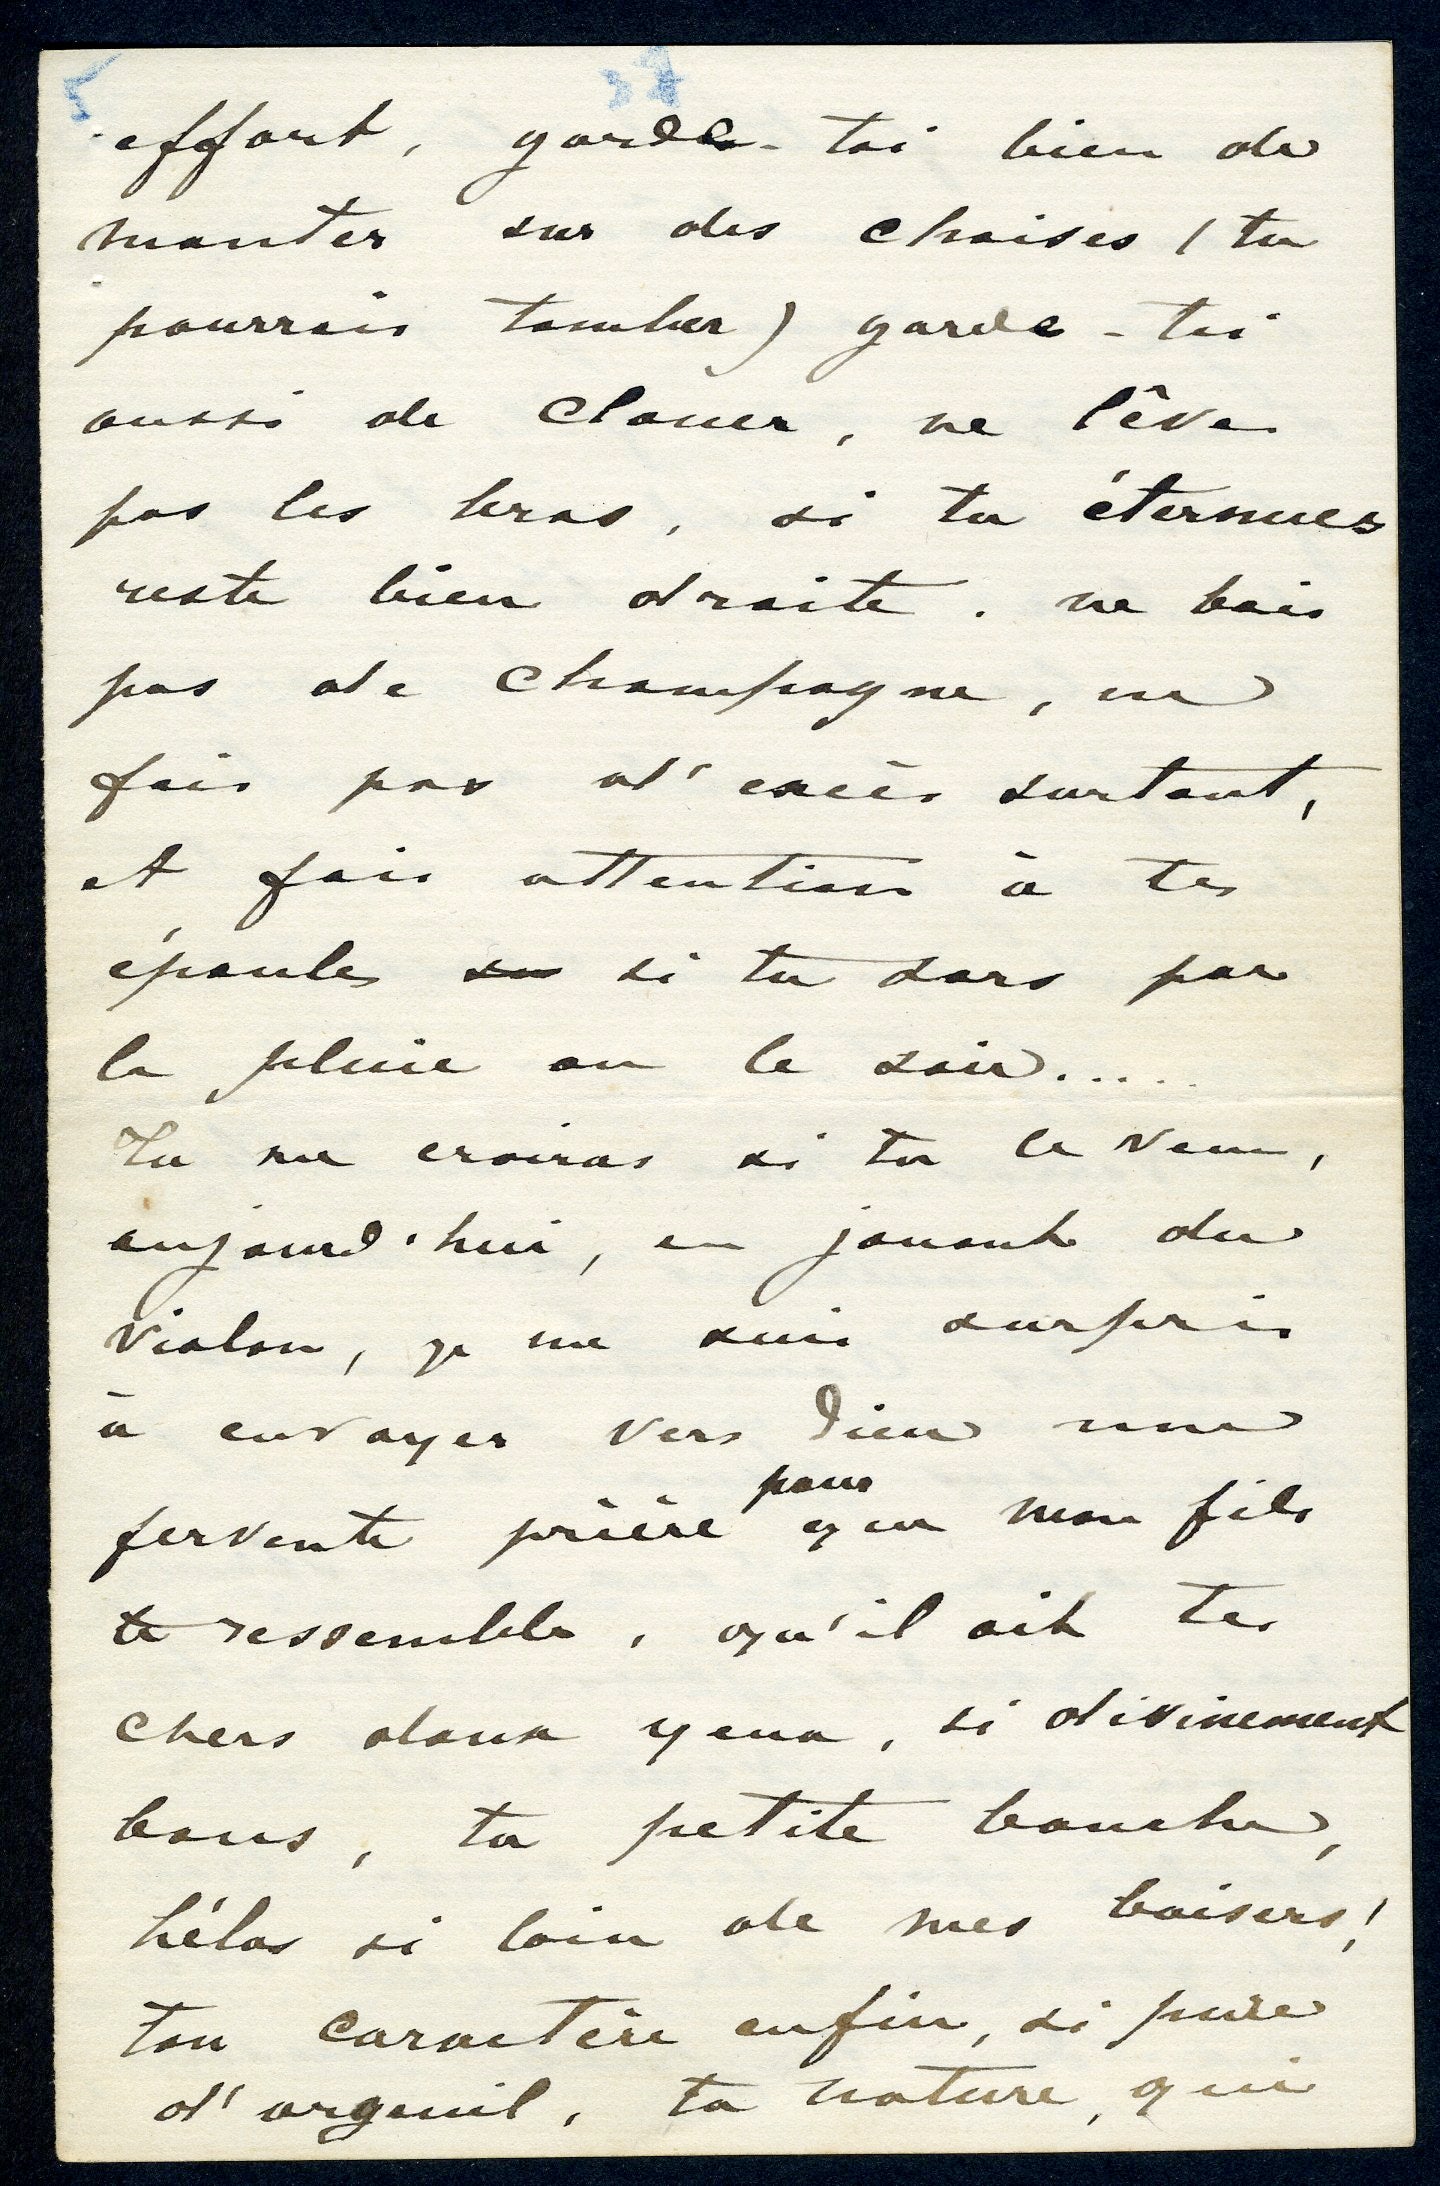 5 37
effort, garde-toi bien de
monter sur des chaises (tu
pourrais tomber) garde-toi
aussi de clouer, ne lêve
pas les bras, si tu éternues
reste bien droite. ne bois
pas de champagne, ne
fais pas d'excès surtout,
et fais attention à tes
épaules su si tu sors par
la pluie ou le soir.....
Tu me croiras si tu le veux,
aujourd'hui, en jouant du
violon, je me suis surpris
à envoyer vers Dieu une
pour
fervente prière que mon fils
te ressemble, qu'il ait tes
chers doux yeux, si divinement
bons, ta petite bouche,
hélas si loin de mes baisers!
ton caractère enfin, si pure
d'orgeuil, ta nature, qui